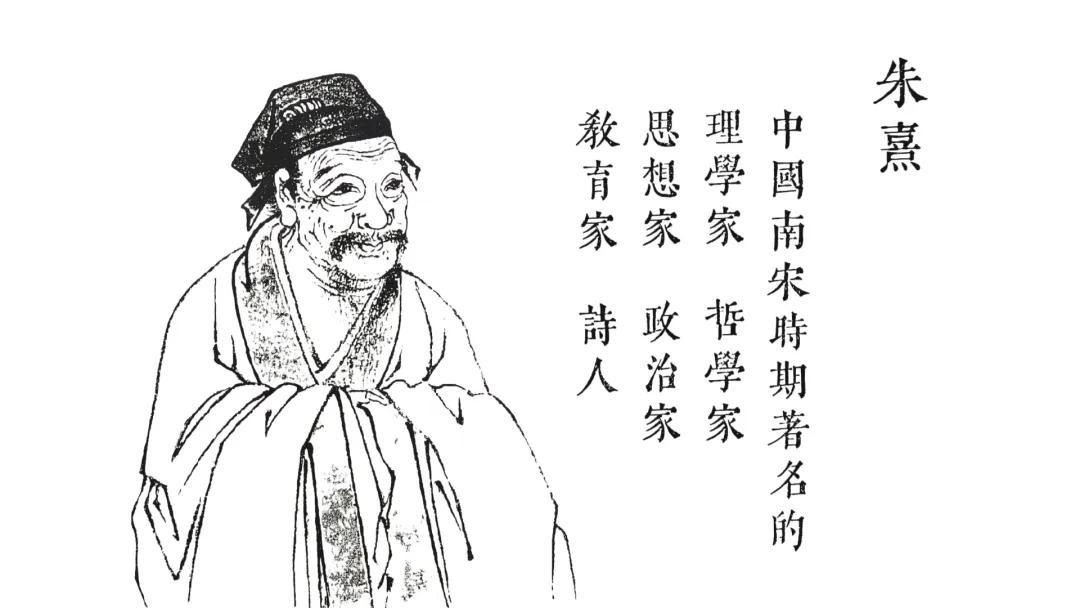 朱熹
中國南宋時期著名的
理學家 哲學家
思想家 政治家
教育家 詩人